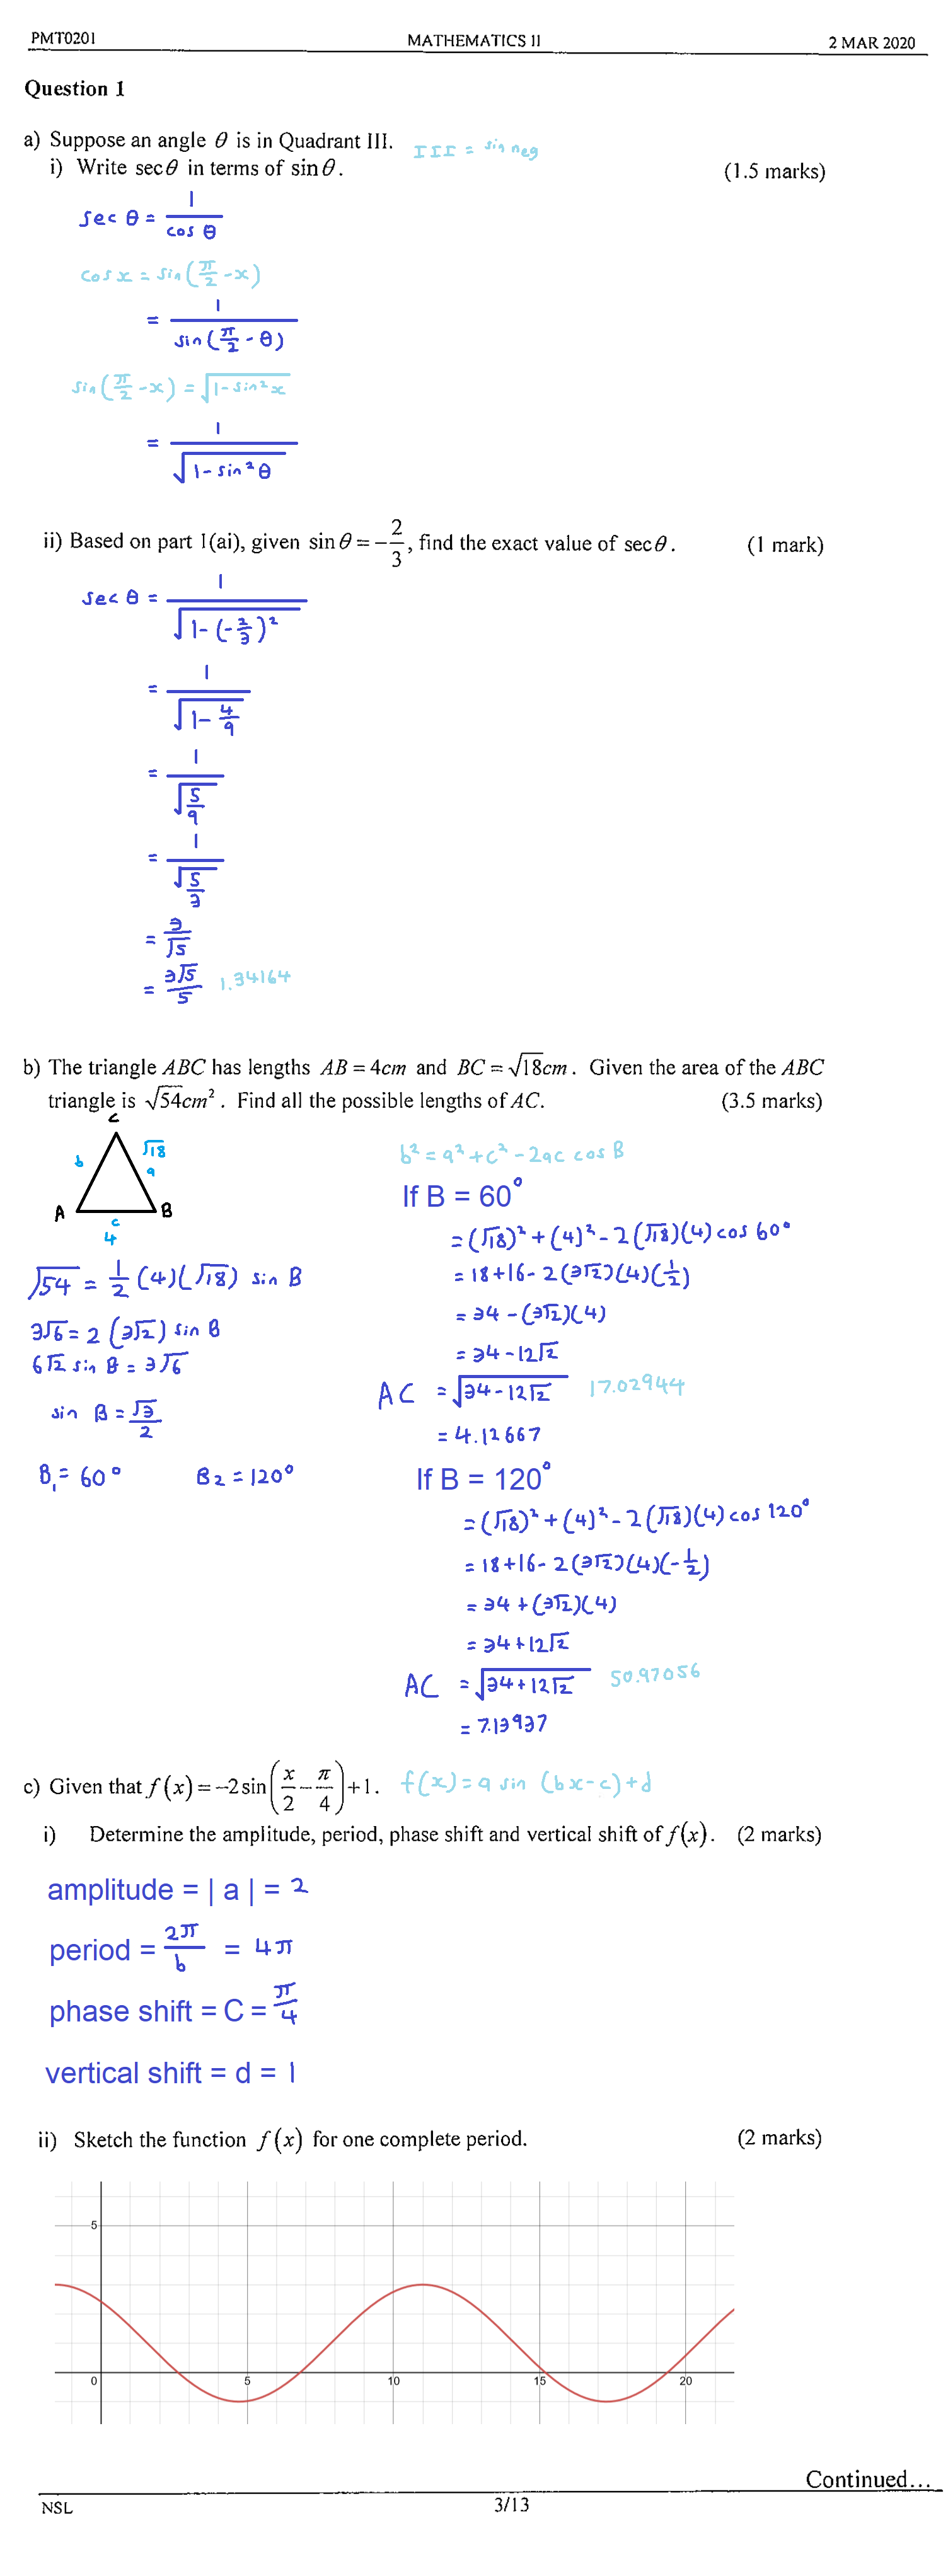 PMT0201 MATHEMATICS II 2 MAR 2020
Question 1
a) Suppose an angle θ is in Quadrant III. III = sin neg
i) Write sec θ in terms of sin θ. (1.5 marks)
sec θ = 1/cos θ
cos x = sin(π/2 - x)
= 1/sin(π/2 - θ)
sin(π/2 - x) = √(1 - sin² x)
= 1/√(1 - sin² θ)
ii) Based on part 1(ai), given sin θ = -2/3, find the exact value of sec θ. (1 mark)
sec θ = 1/√(1 - (-2/3)²)
= 1/√(1 - 4/9)
= 1/√(5/9)
= 1/(√5/3)
= 3/√5
= 3√5/5 1.34164
b) The triangle ABC has lengths AB = 4cm and BC = √18cm. Given the area of the ABC
triangle is √54cm². Find all the possible lengths of AC. (3.5 marks)
C
b √18
a
A B
c
4
√54 = 1/2 (4)(√18) sin B
3√6 = 2(3√2) sin B
6√2 sin B = 3√6
sin B = √3/2
B₁ = 60° B₂ = 120°
b² = a² + c² - 2ac cos B
If B = 60°
= (√18)² + (4)² - 2(√18)(4) cos 60°
= 18 + 16 - 2(3√2)(4)(1/2)
= 34 - (3√2)(4)
= 34 - 12√2
AC = √(34 - 12√2) 17.02944
= 4.12667
If B = 120°
= (√18)² + (4)² - 2(√18)(4) cos 120°
= 18 + 16 - 2(3√2)(4)(-1/2)
= 34 + (3√2)(4)
= 34 + 12√2
AC = √(34 + 12√2) 50.97056
= 7.13937
c) Given that f(x) = -2 sin(x/2 - π/4) + 1. f(x) = a sin (bx - c) + d
i) Determine the amplitude, period, phase shift and vertical shift of f(x). (2 marks)
amplitude = | a | = 2
period = 2π/b = 4π
phase shift = C = π/4
vertical shift = d = 1
ii) Sketch the function f(x) for one complete period. (2 marks)
5
0 5 10 15 20
Continued...
NSL 3/13